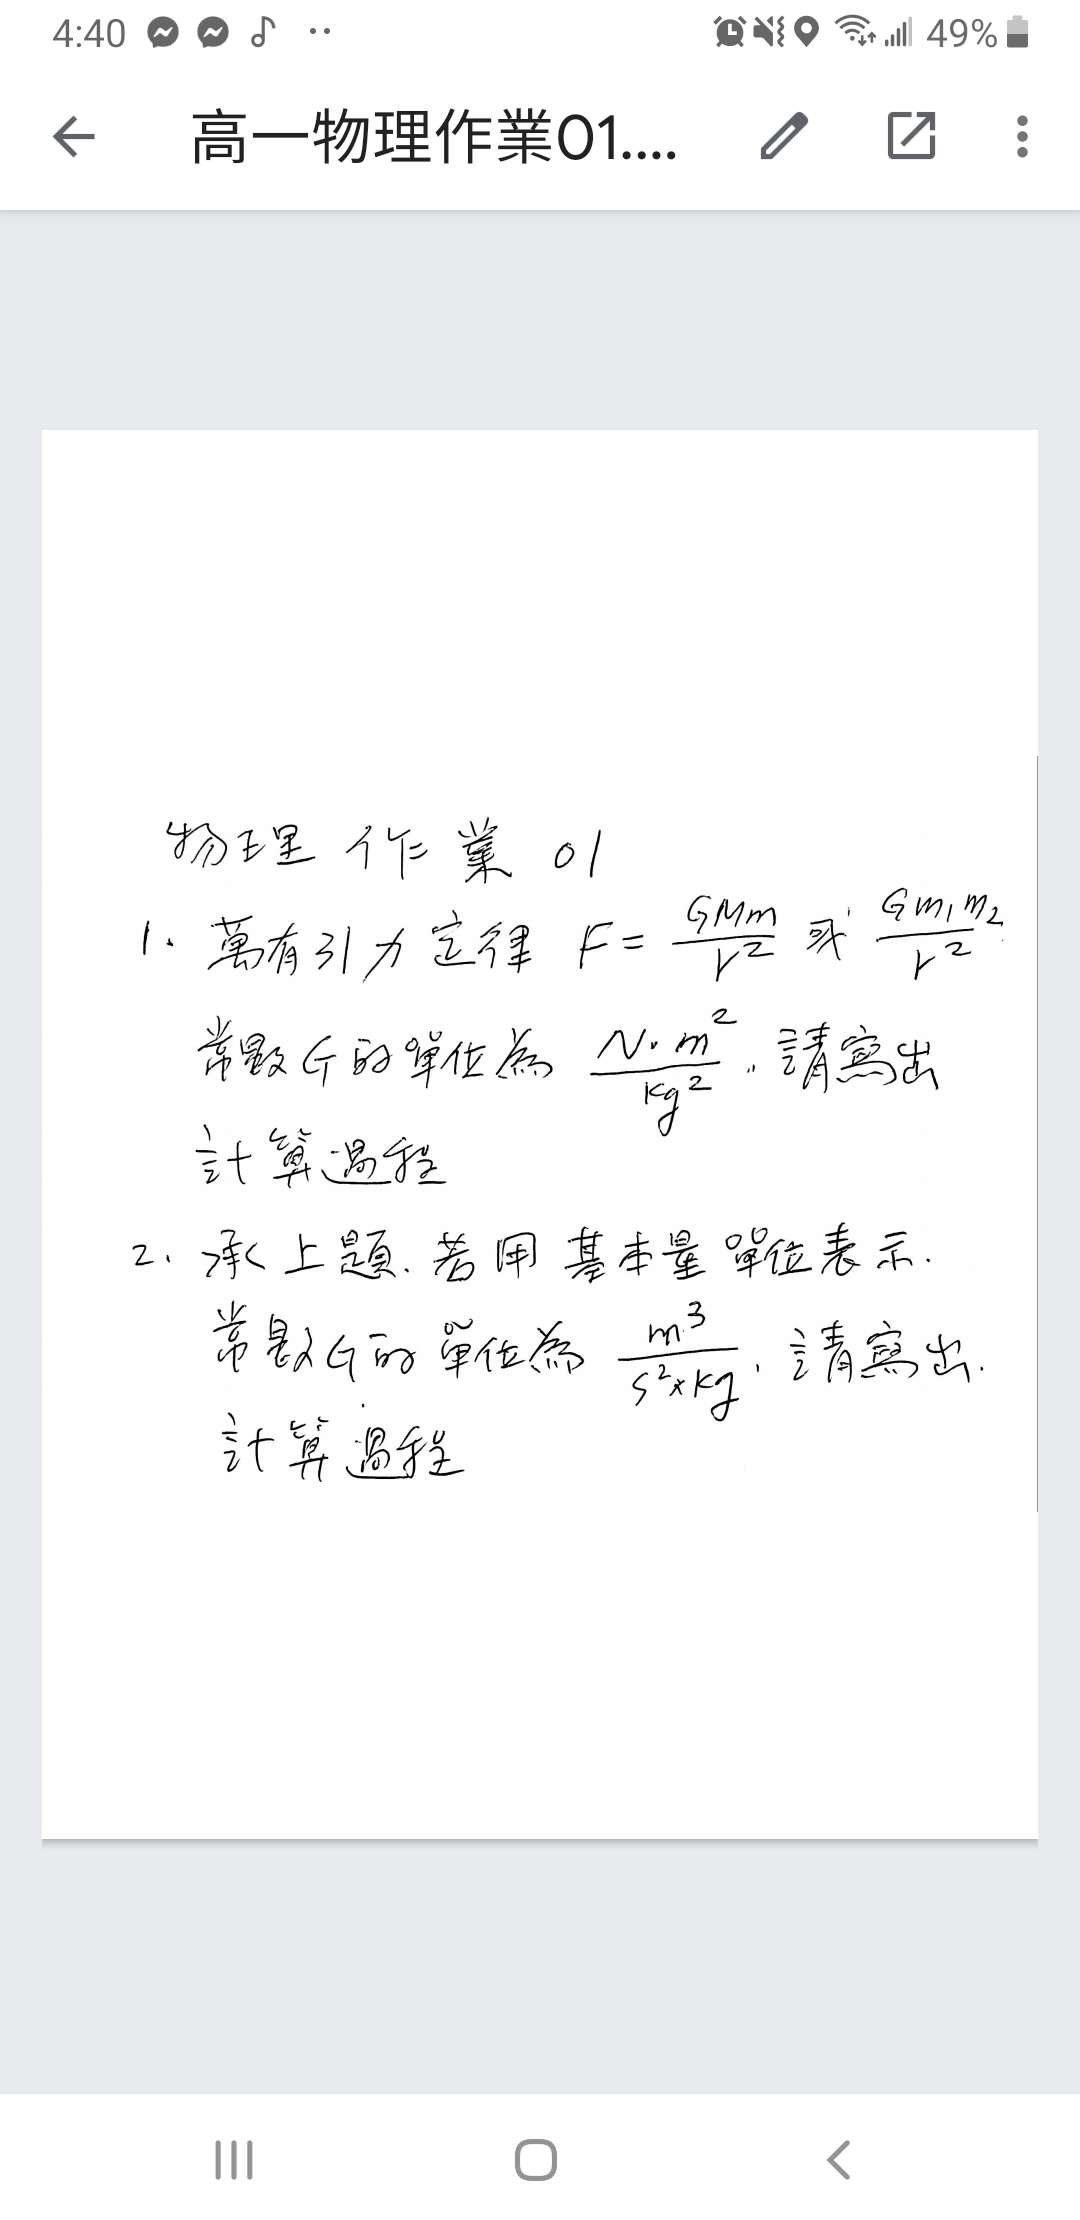 4:40
49%
高一物理作業01....
物理 作業 01
1. 萬有引力定律 F = GMm/r² 或 Gm₁m₂/r².
常數G的單位為 N·m²/kg² , 請寫出
計算過程
2. 承上題. 若用基本量單位表示.
常數G的單位為 m³/s²×kg , 請寫出.
計算過程